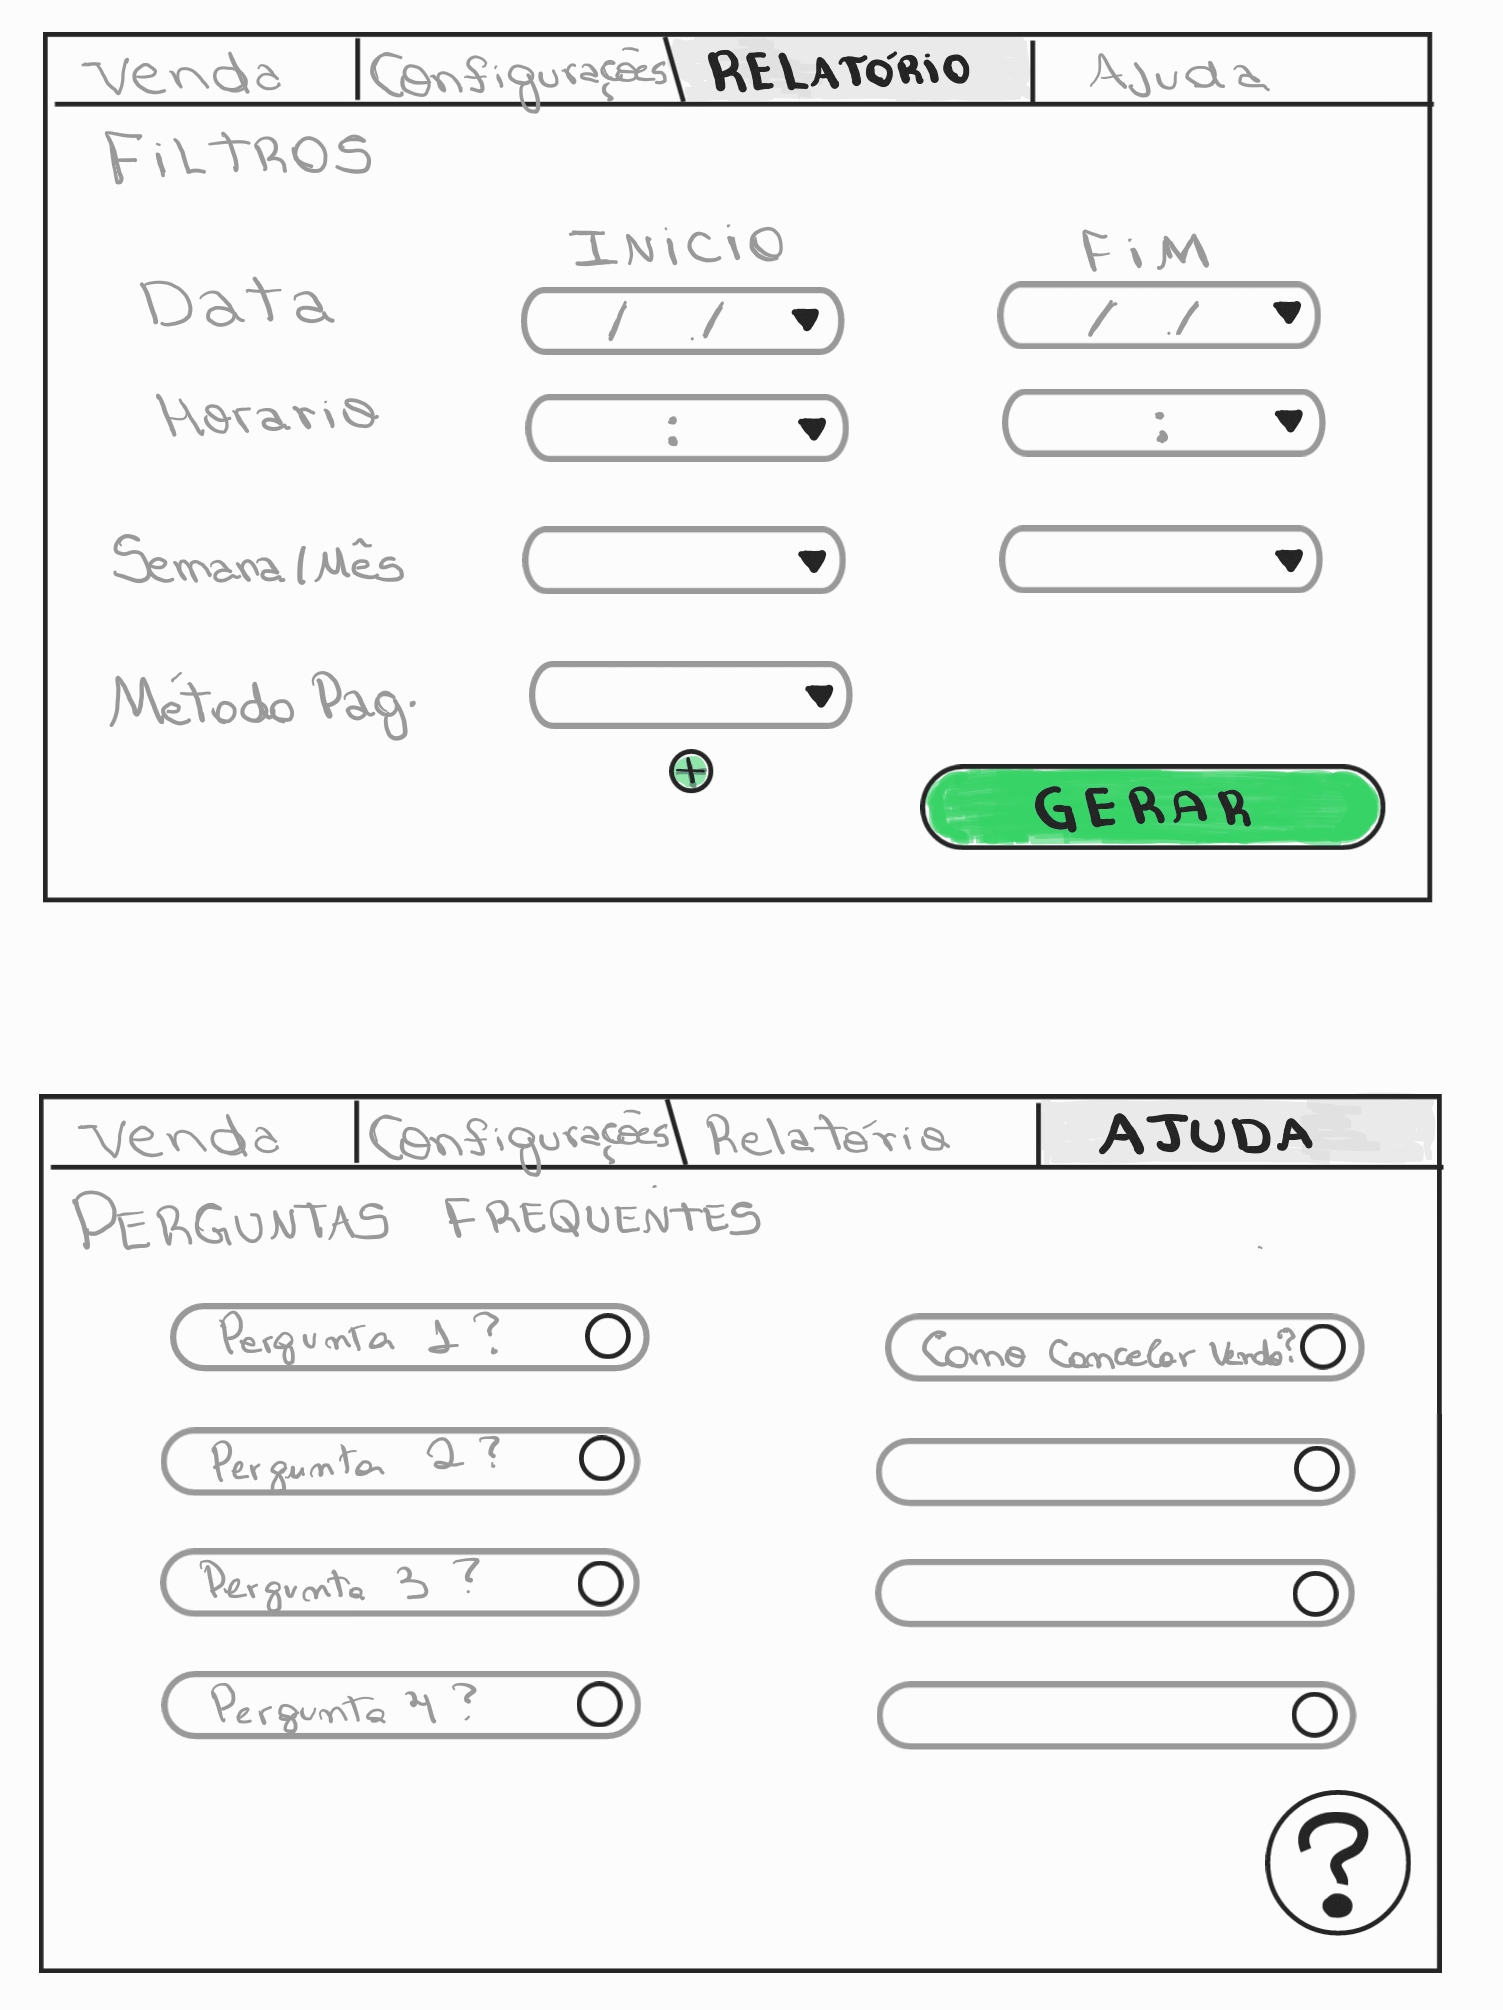 Venda Configurações RELATÓRIO Ajuda
FiLTROS
INiCiO FiM
Data / / / /
Horario : :
Semana/Mês
Método Pag.
+
GERAR
Venda Configurações Relatório AJUDA
PERGUNTAS FREQUENTES
Pergunta 1? Como Cancelar Venda?
Pergunta 2?
Pergunta 3?
Pergunta 4?
?